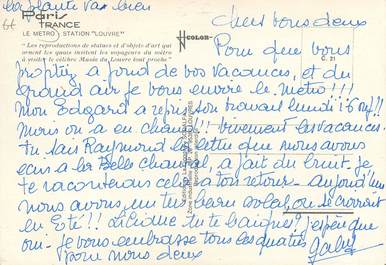 la plante va bien
Paris
FRANCE
LE METRO STATION "LOUVRE"
" Les reproductions de statues et d'objets d'art qui
ornent les quais invitent les voyageurs du métro
à visiter le célèbre Musée du Louvre tout proche "
COLOR
C. 21
Chers vous deux
Pour que vous
profitiez à fond de vos vacances, et du
grand air je vous envoie le métro !!!
mon Edgard a repris son travail lundi
Mais on a eu chaud !!! vivement les vacances
tu sais Raymond la lettre que nous avons
écris à la Belle Chantal, a fait du bruit. Je
te raconterai cela à ton retour - aujourd'hui
nous avons, un temps bien on se croirait
en Eté !! tu te baignes ? j'espère que
oui - je vous embrasse tous les quatre
pour nous deux
Gaby